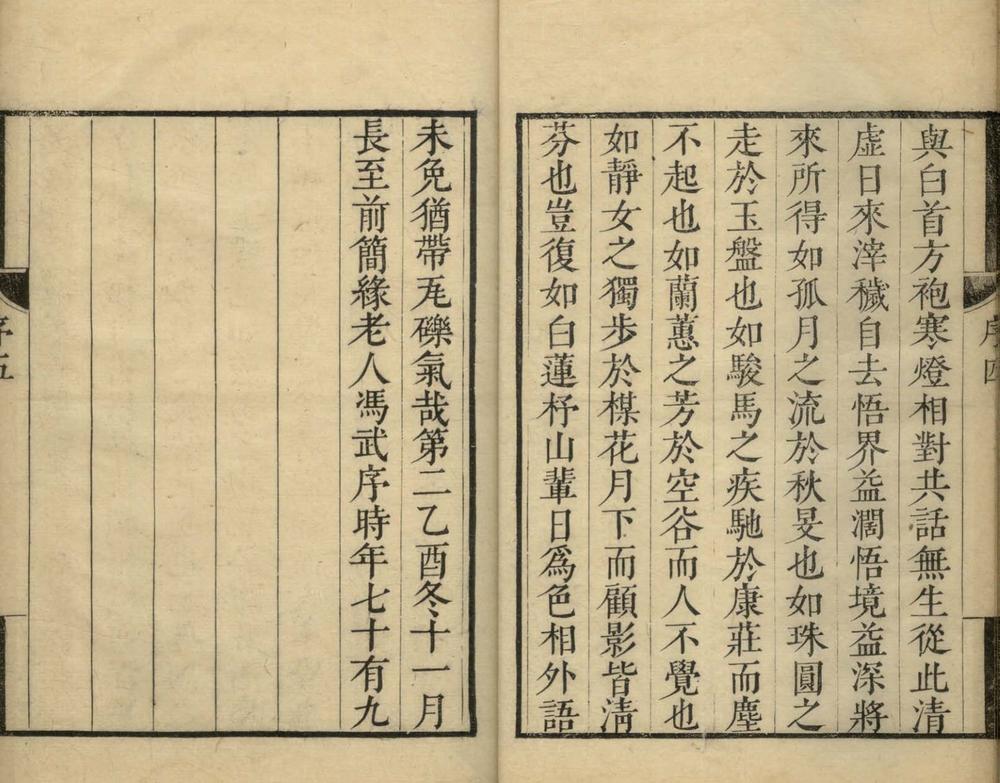 與白首方袍寒燈相對共話無生從此清
虛日來滓穢自去悟界益濶悟境益深將
來所得如孤月之流於秋旻也如珠圓之
走於玉盤也如駿馬之疾馳於康莊而塵
不起也如蘭蕙之芳於空谷而人不覺也
如靜女之獨步於楳花月下而顧影皆清
芬也豈復如白蓮杼山輩日爲色相外語
序四
未免猶帶瓦礫氣哉第二乙酉冬十一月
長至前簡緣老人馮武序時年七十有九
序五